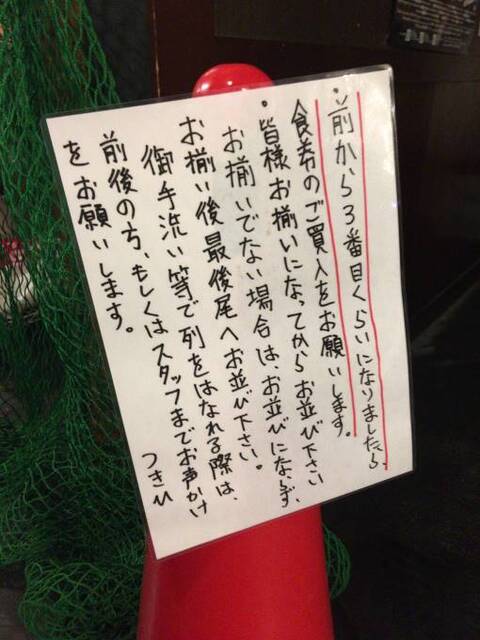 ・前から3番目くらいになりましたら、
食券のご買入をお願いします。
・皆様お揃いになってからお並び下さい
お揃いでない場合は、お並びにならず、
お揃い後最後尾へお並び下さい。
御手洗い等で列をはなれる際は、
前後の方、もしくはスタッフまでお声かけ
をお願いします。
つきひ